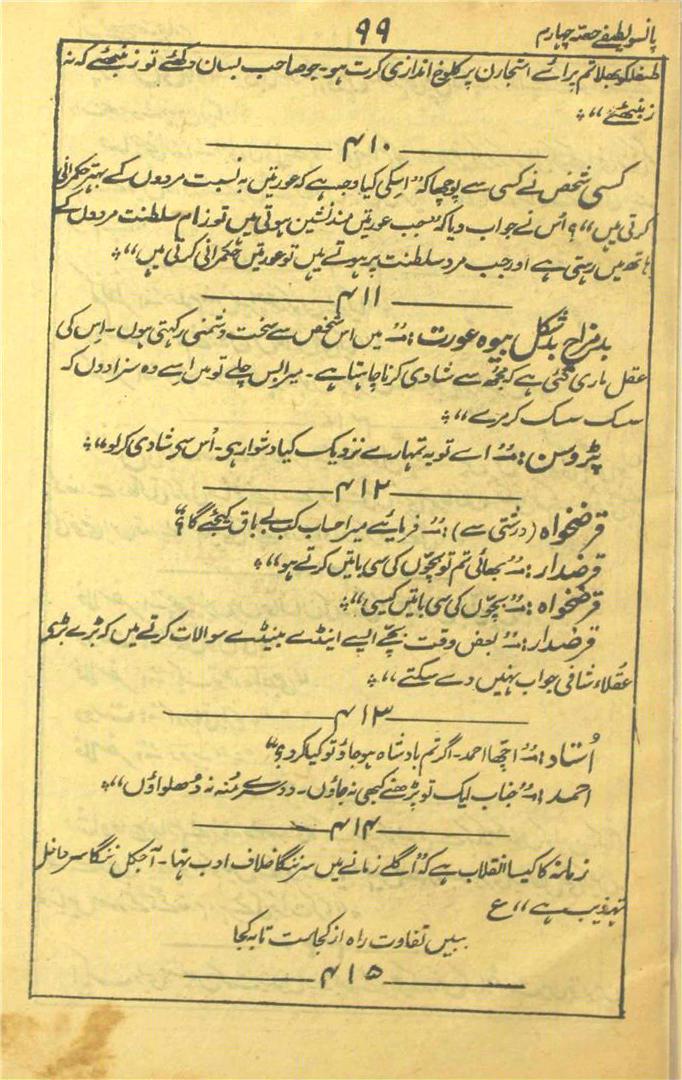 پانسو لطیفے حصہ چہارم ۹۹
طفلکو بھلا تم پرائے استجارن پر کلوخ اندازی کرت ہو۔ جو صاحب بسان دکھئے تو ز بنبھئے کہ نہ
ز بنبھئے،،*
۴۱۰
کسی شخص نے کسی سے پوچھا کہ ''اسکی کیا وجہ ہے کہ عورتیں بہ نسبت مردوں کے بہتر حکمرانی
کرتی ہیں،،؟ اُس نے جواب دیا کہ ''جب عورتیں مسندنشین ہوتی ہیں تو زمام سلطنت مردوں کے
ہاتھ میں رہتی ہے اور جب مرد سلطنت پر ہوتے ہیں تو عورتیں حکمرانی کرتی ہیں،،*
۴۱۱
بدمزاج بدشکل بیوہ عورت:۔ ''میں اس شخص سے سخت دشمنی رکہتی ہوں۔ اِس کی
عقل ماری گئی ہے کہ مجھ سے شادی کرنا چاہتا ہے۔ میرا بس چلے تو میں اِسے وہ سزا دوں کہ
سسک سسک کر مرے،،*
پڑوسن:۔ ''اے تو یہ تمہارے نزدیک کیا دشوار ہی۔ اُس سی شادی کر لو،،*
۴۱۲
قرضخواہ (درشتی سے):۔ ''فرمائیے میرا حساب کب بے باق کیجئے گا؟''
قرضدار:۔ ''بھائی تم تو بچّوں کی سی باتیں کرتے ہو،،*
قرضخواہ:۔ ''بچّوں کی سی باتیں کیسی،،*
قرضدار:۔ ''بعض وقت بچّے ایسے اینڈے بینڈے سوالات کرتے ہیں کہ بڑے بڑے
عُقلاء شافی جواب نہیں دے سکتے،،*
۴۱۳
اُستاد:۔ ''اچّھا احمد۔ اگر تم بادشاہ ہو جاؤ تو کیا کرو؟''
احمد:۔ ''جناب ایک تو پڑھنے کبھی نہ جاؤں۔ دوسرے مُنہ نہ دُھلواؤں،،*
۴۱۴
زمانہ کا کیسا انقلاب ہے کہ ''اگلے زمانے میں سر ننگا خلاف ادب تہا۔ آجکل ننگا سر داخل
تہذیب ہے،، ع
ببیں تفاوت راہ از کجاست تا بہ کجا
۴۱۵